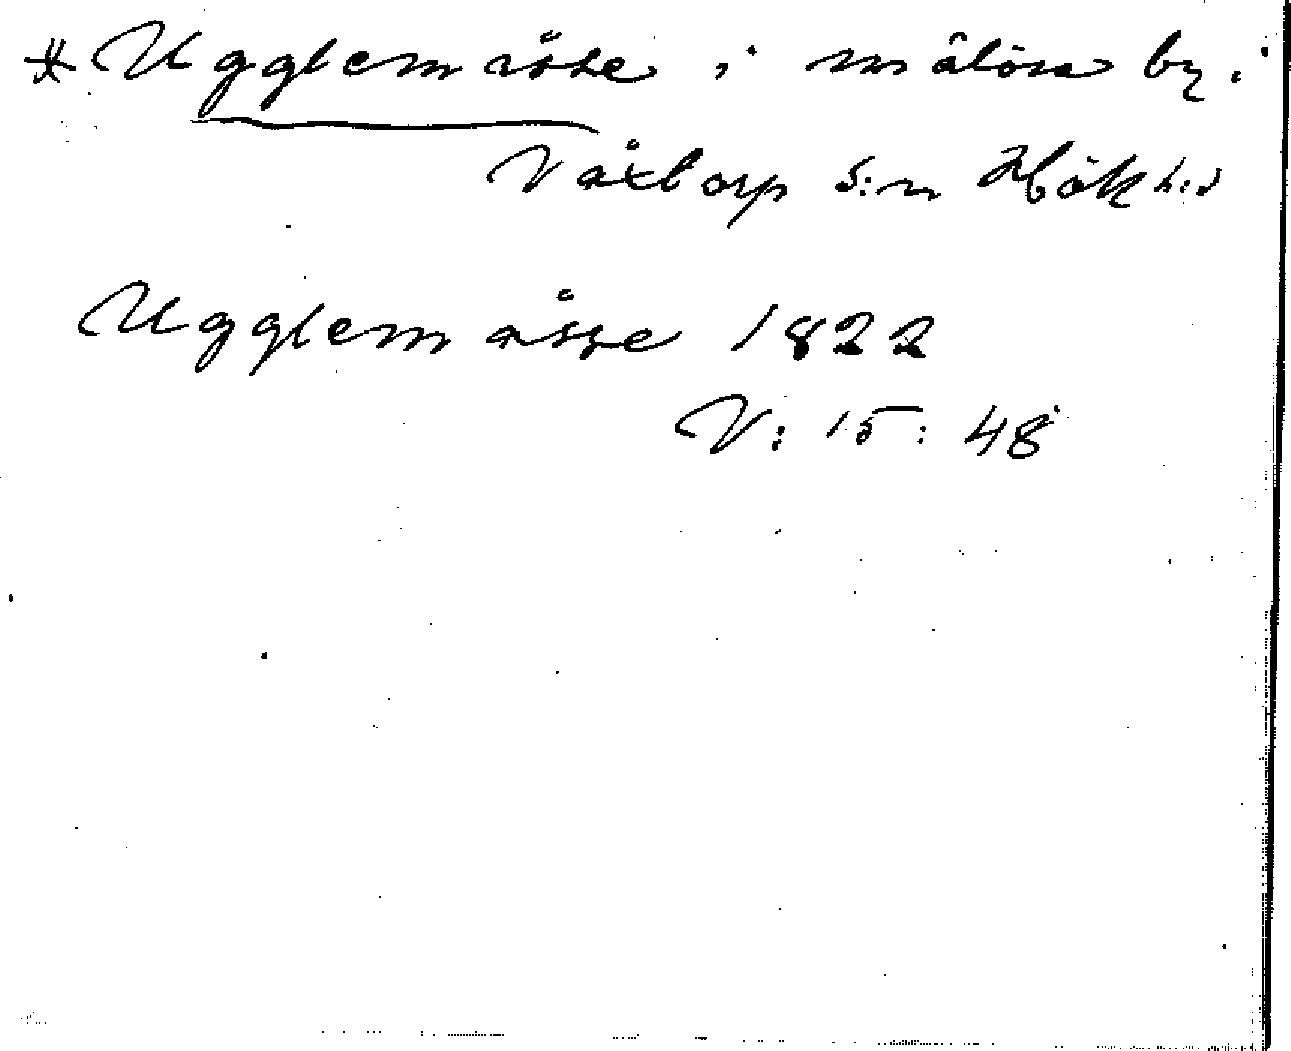 * Ugglemåsse i målöse by i
Våxtorp s:n Hök h:d
Ugglemåsse 1822
V: 15: 48